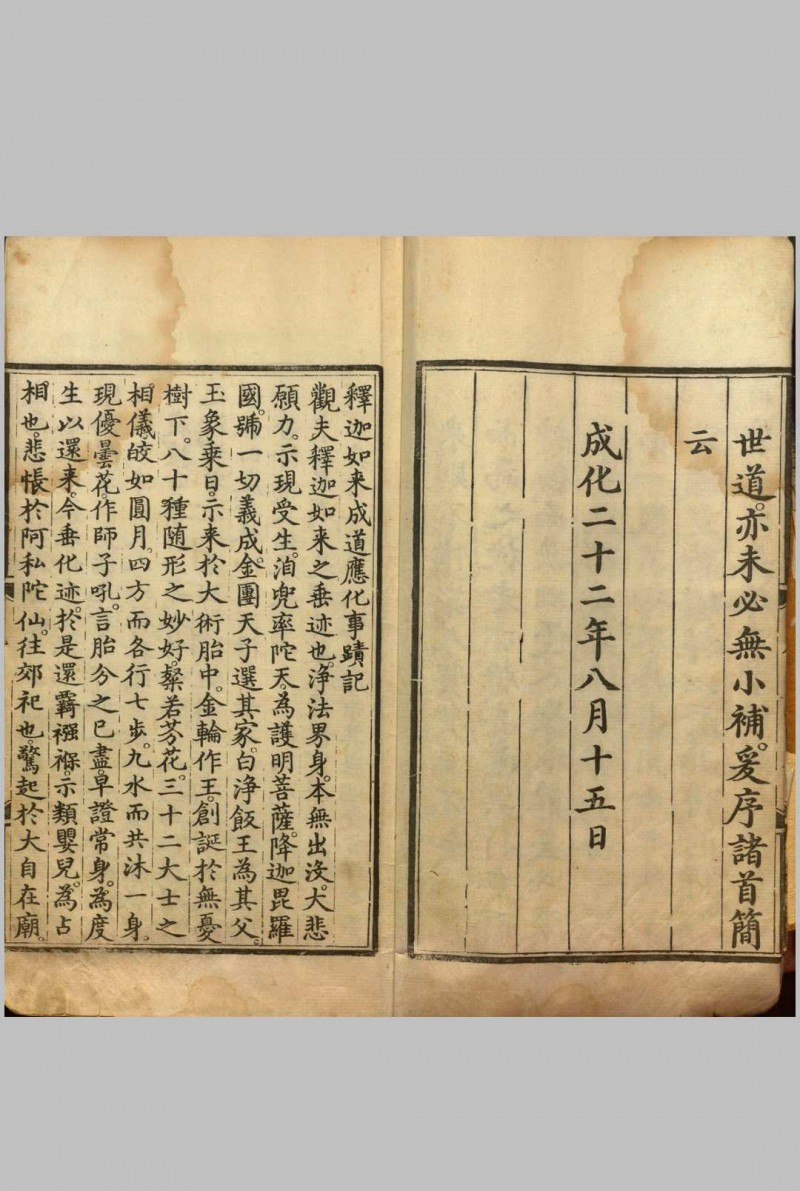 世道。亦未必無小補。爰序諸首簡
云
成化二十二年八月十五日
釋迦如来成道應化事蹟記
觀夫釋迦如来之垂迹也。浄法界身。本無出没。大悲
願力。示現受生。洎兜率陀天。為護明菩薩。降迦毘羅
國。號一切義成。金團天子選其家。白浄飯王為其父。
玉象乘日。示来於大術胎中。金輪作王。創誕於無憂
樹下。八十種隨形之妙好。粲若芬花。三十二大士之
相儀。皎如圓月。四方而各行七步。九水而共沐一身。
現優曇花。作師子吼。言胎分之巳盡。早證常身。為度
生以還来。今垂化迹。於是還覊襁褓。示類嬰兒。為占
相也。悲悵於阿私陀仙。往郊祀也。驚起於大自在廟。